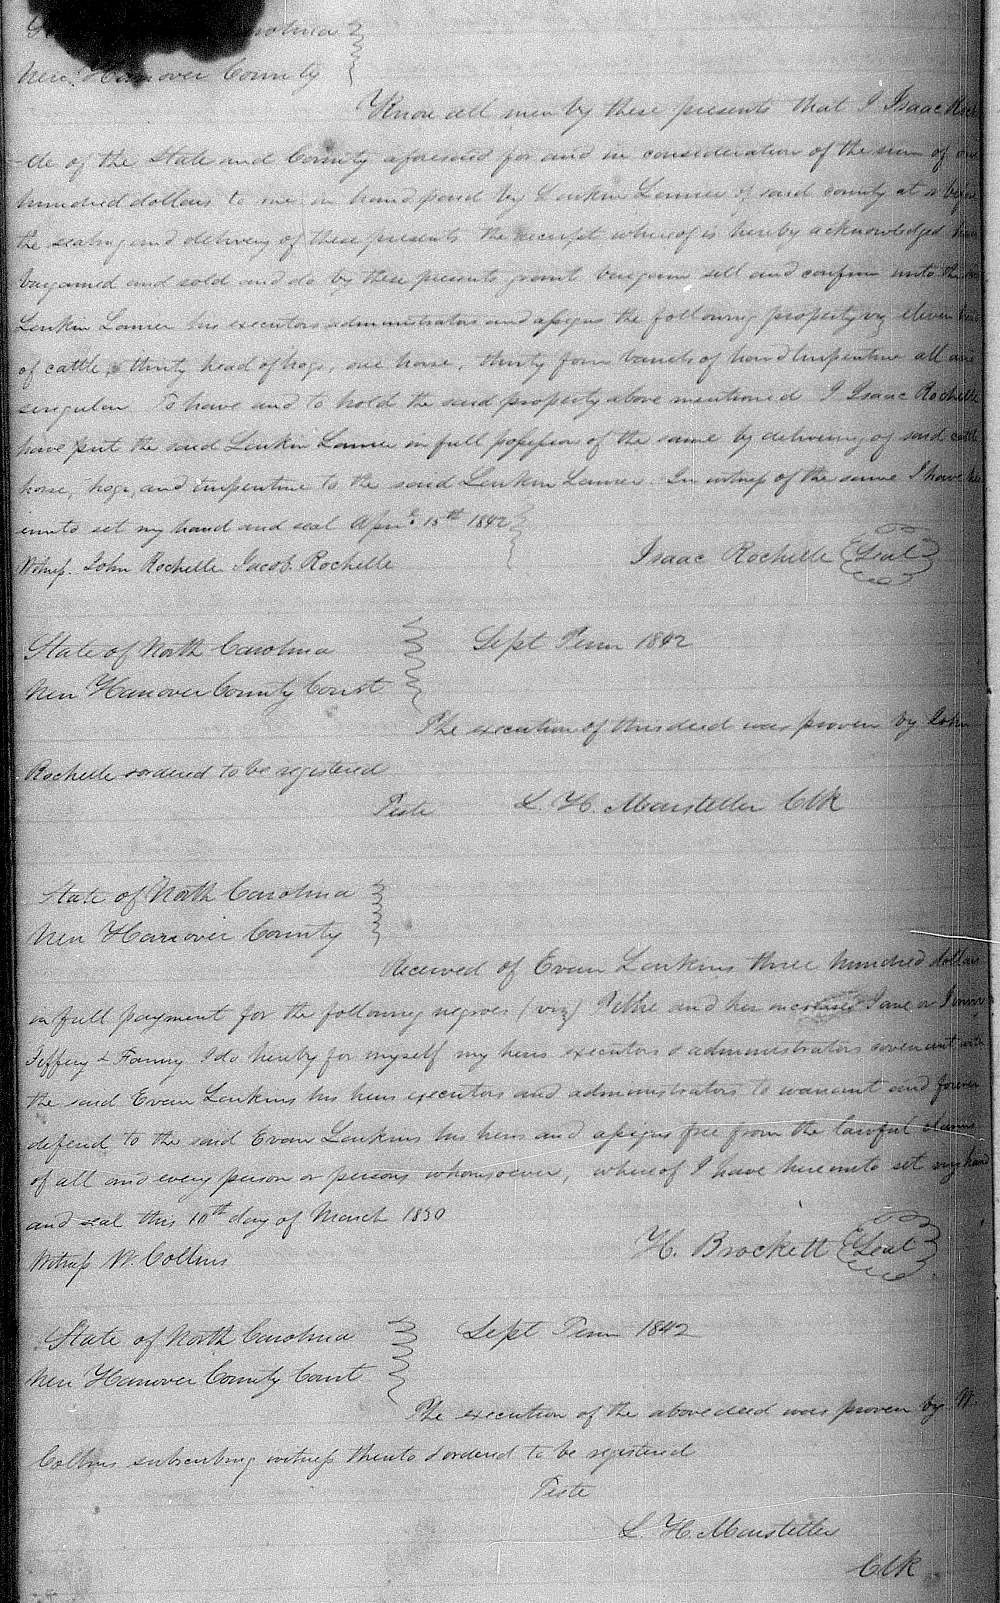 Carolina
New Hanover County
Know all men by these presents that I Isaac Roch
-elle of the State and County aforesaid for and in consideration of the sum of one
hundred dollars to me in hand paid by Larkin Lanier of said county at & before
the sealing and delivery of these presents the receipt whereof is hereby acknowledged have
bargained and sold and do by these presents grant bargain sell and confirm unto the said
Larkin Lanier his executors administrators and assigns the following property viz eleven head
of cattle, thirty head of hogs, one horse, thirty four barrels of hard turpentine all and
singular To have and to hold the said property above mentioned I Isaac Rochelle
have put the said Larkin Lanier in full possession of the same by delivering of said cattle
horse, hogs, and turpentine to the said Larkin Lanier. In witness of the same I have here
unto set my hand and seal April 15th 1842
Witness. John Rochelle Jacob Rochelle Isaac Rochelle (Seal)
State of North Carolina Sept Term 1842
New Hanover County Court
The execution of this deed was proven by John
Rochelle & ordered to be registered
Teste L. H. Marsteller Clk
State of North Carolina
New Hanover County
Received of Evan Larkins three hundred dollars
in full payment for the following negroes (viz) and her increase Jane
Jeffery & Fanny I do hereby for myself my heirs executors & administrators covenant with
the said Evan Larkins his heirs executors and administrators to warrant and forever
defend to the said Evan Larkins his heirs and assigns free from the lawful claims
of all and every person or persons whomsoever, whereof I have hereunto set my hand
and seal this 10th day of March 1830
Witness W. Collins H. Brockett (Seal)
State of North Carolina Sept Term 1842
New Hanover County Court
The execution of the above deed was proven by W.
Collins subscribing witness thereto & ordered to be registered
Teste
L. H. Marsteller
Clk